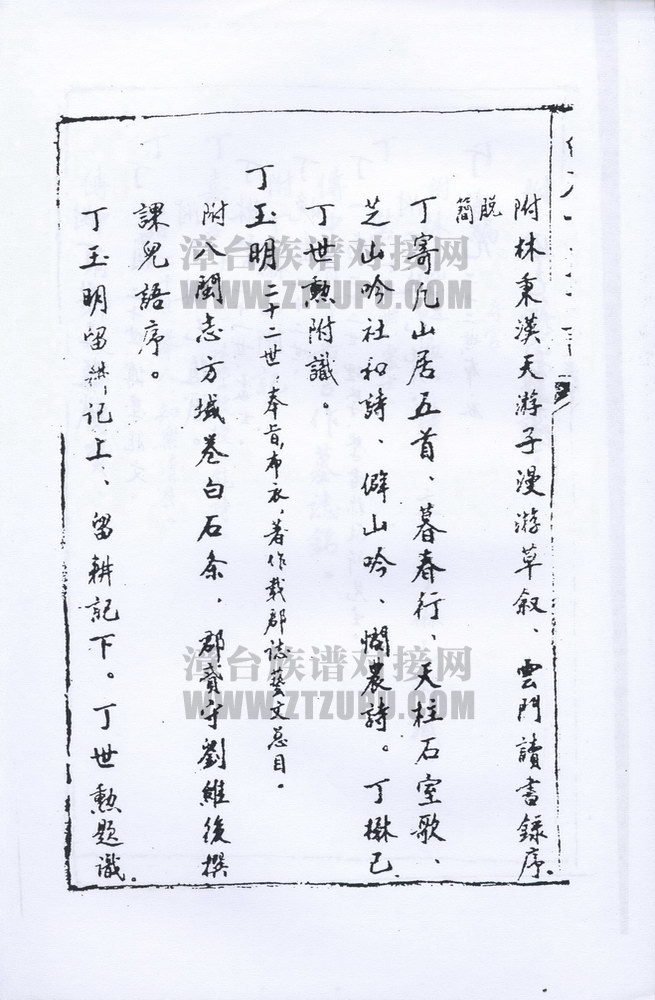 附林秉漢天游子漫游草叙、雲門讀書録序、
脱
簡
丁寄凡山居五首、暮春行、天柱石室歌、
芝山吟社和詩、僻山吟、憫農詩。丁楙已
丁世勲附識。
丁玉明二十二世，奉旨布衣，著作載郡誌藝文总目。
附八閩志方域卷白石条，郡貳守劉維後撰
課兒語序。
丁玉明留耕记上、留耕記下。丁世勲题識。
漳台族谱对接网
WWW.ZTZUPU.COM
漳台族谱对接网
WWW.ZTZUPU.COM